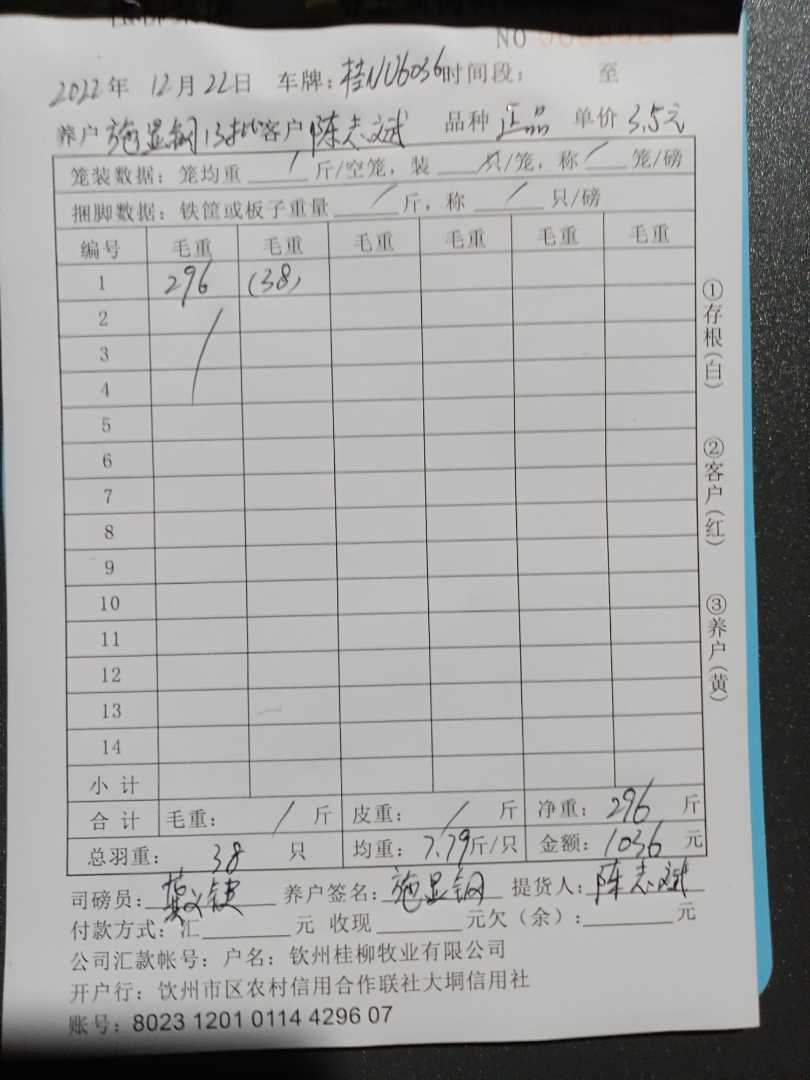 NO
2022年 12月22日 车牌:桂NU6036时间段: 至
养户 施显钢 13批客户 陈志斌 品种 正品 单价 3.5元
笼装数据: 笼均重 / 斤/空笼, 装 只/笼, 称 / 笼/磅
捆脚数据: 铁筐或板子重量 / 斤, 称 / 只/磅
编号 毛重 毛重 毛重 毛重 毛重 毛重
1 296 (38)
2
3
4
5
6
7
8
9
10
11
12
13
14
小计
合计 毛重: / 斤 皮重: / 斤 净重: 296 斤
总羽重: 38 只 均重: 7.79斤/只 金额: 1036 元
司磅员: 养户签名: 施显钢 提货人: 陈志斌
付款方式: 汇 元 收现 元欠(余): 元
公司汇款帐号: 户名: 钦州桂柳牧业有限公司
开户行: 饮州市区农村信用合作联社大垌信用社
账号: 8023 1201 0114 4296 07
①存根(白)
②客户(红)
③养户(黄)